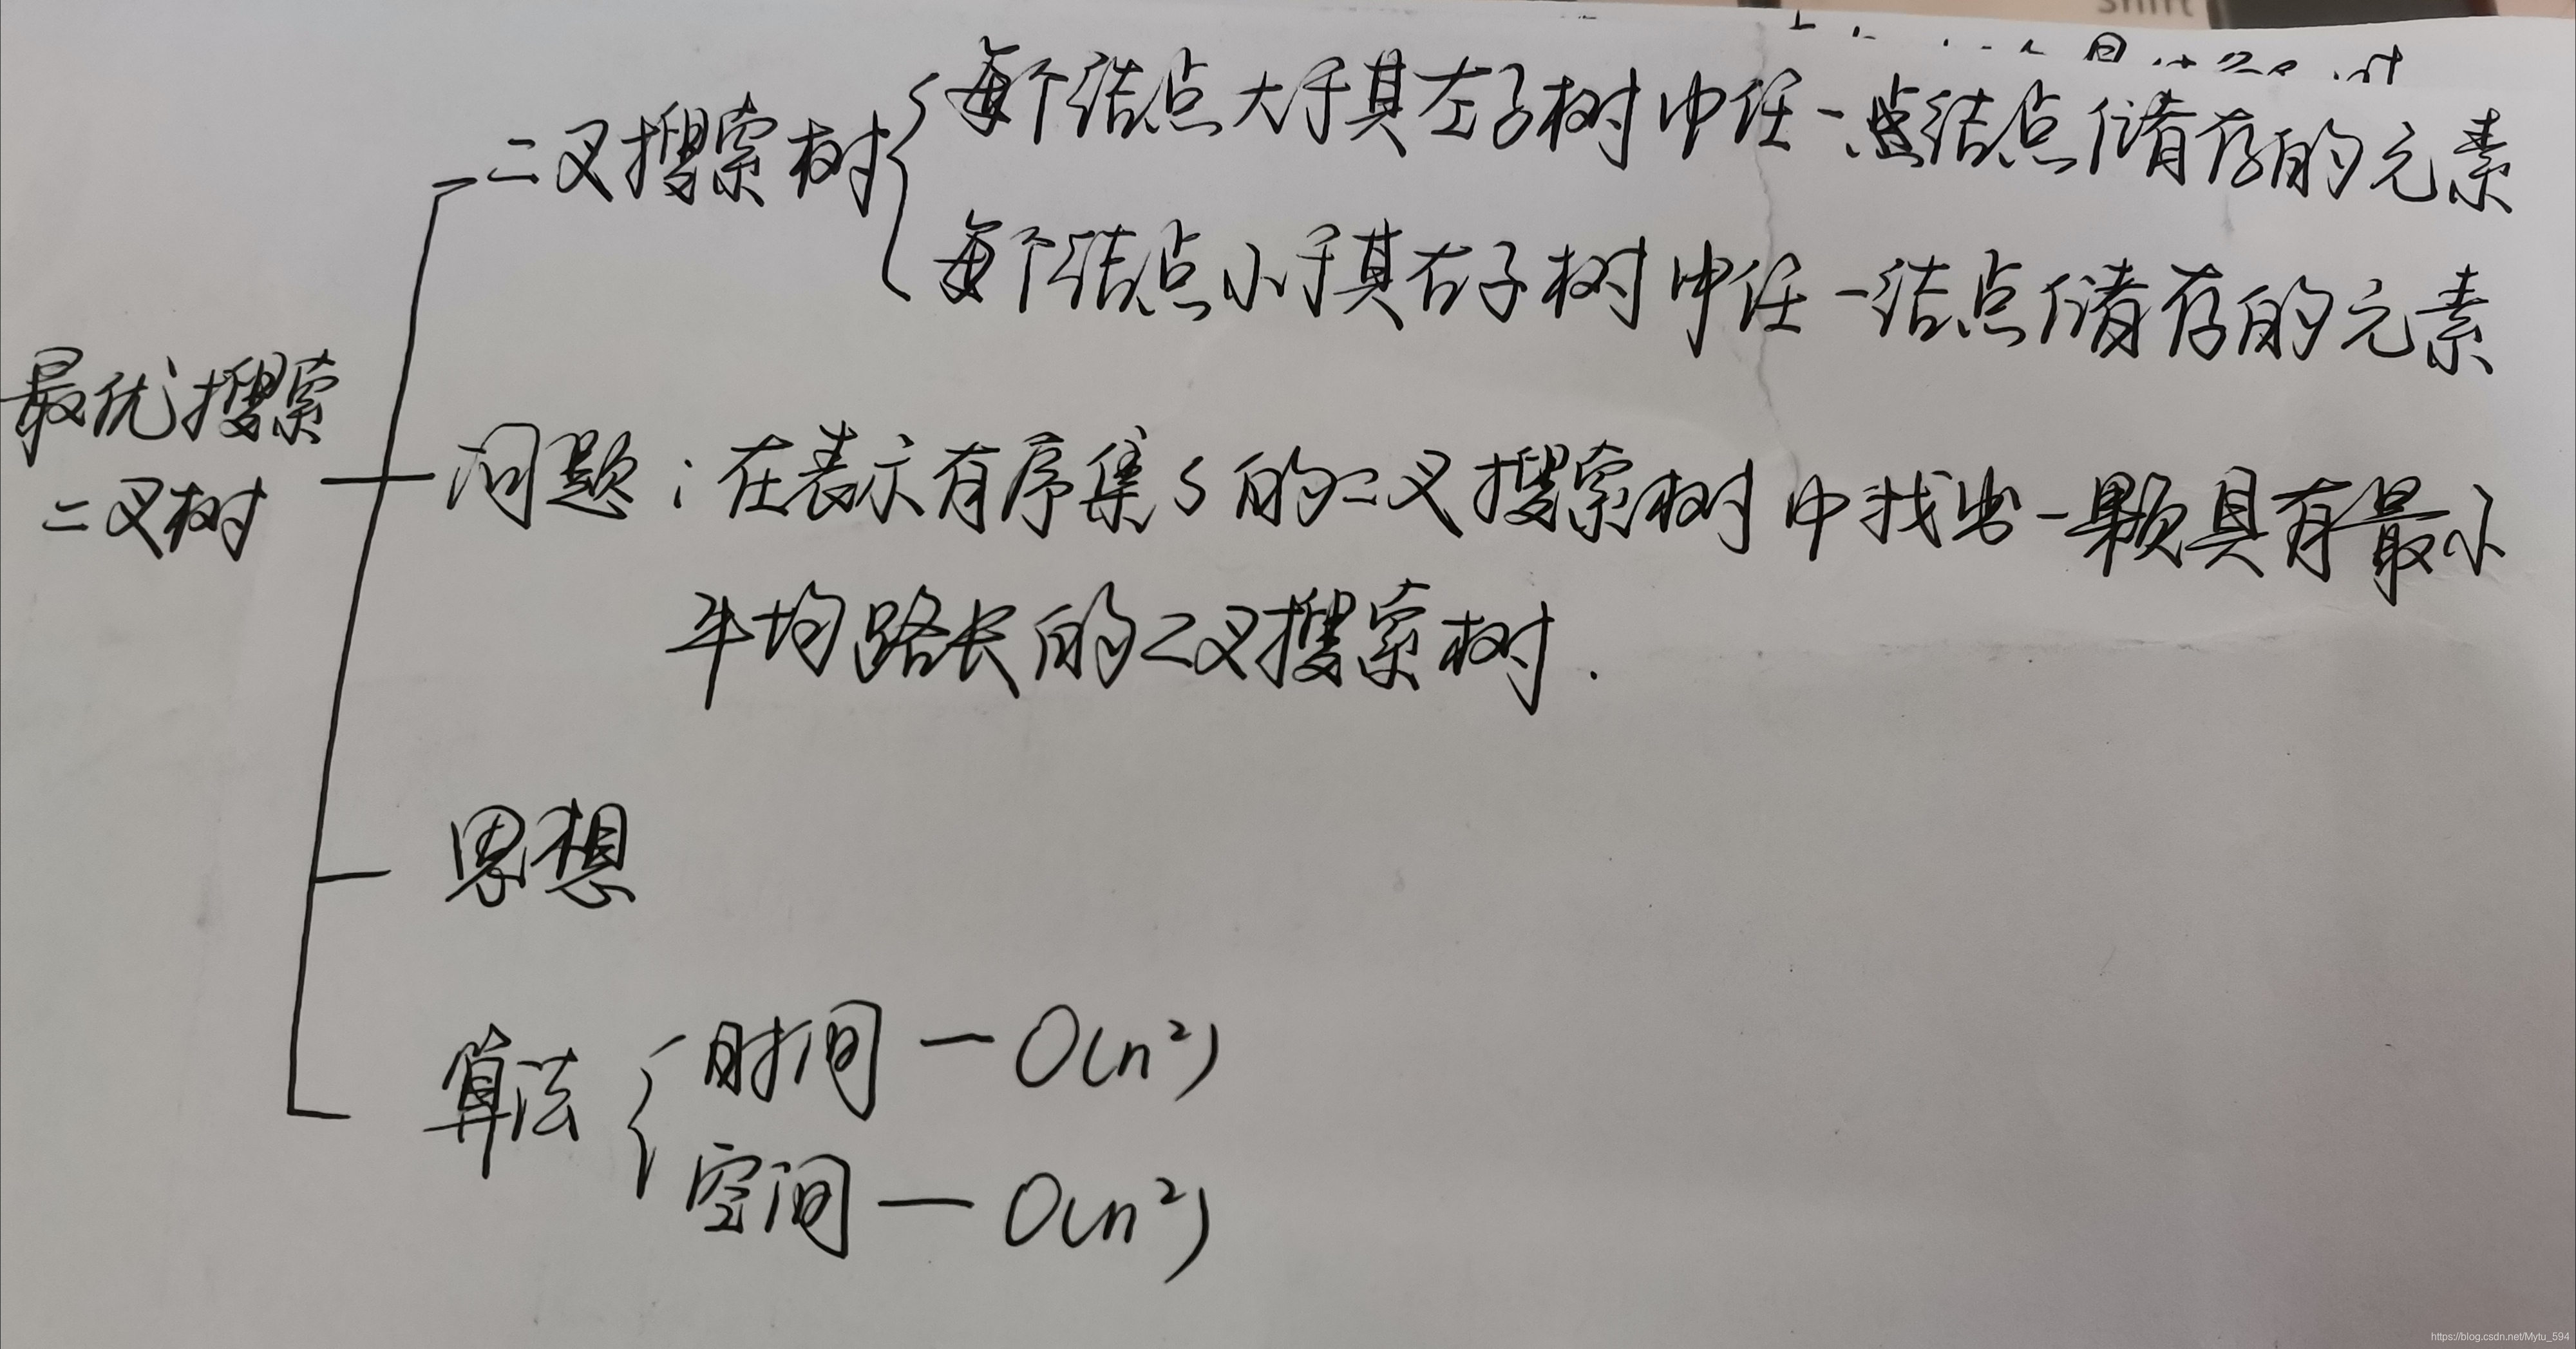 shift
二叉搜索树
每个结点大于其左子树中任一结点储存的元素
每个结点小于其右子树中任一结点储存的元素
最优搜索
二叉树
问题：在表示有序集S的二叉搜索树中找出一颗具有最小
平均路长的二叉搜索树.
思想
算法
时间 — O(n²)
空间 — O(n²)
https://blog.csdn.net/Mytu_594